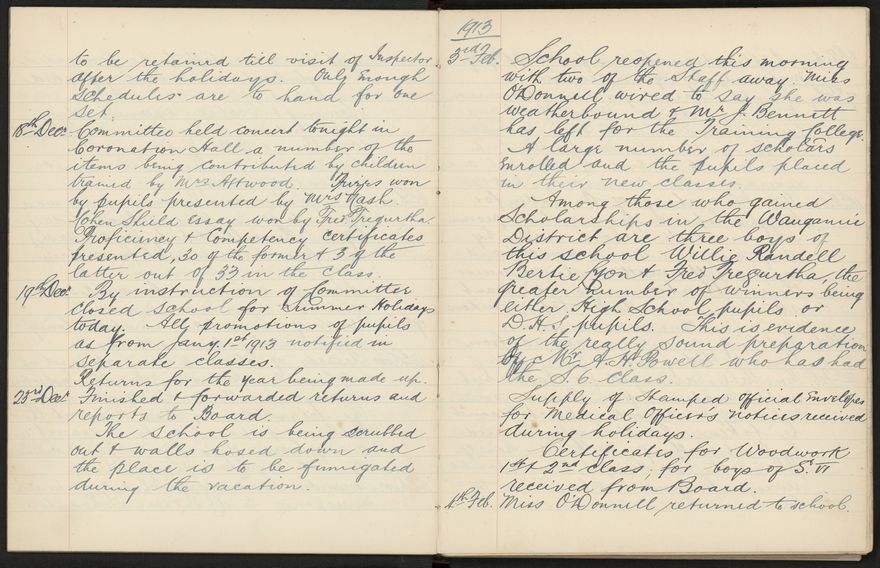 to be retained till visit of Inspector
after the holidays. Only enough
schedules are to hand for one
set.
18th Decr. Committee held concert tonight in
Coronation Hall a number of the
items being contributed by children
trained by Mrs Attwood. Prizes won
by pupils presented by Mrs Nash.
Cohen Shield essay won by Fred Tregurtha.
Proficiency & Competency certificates
presented, 30 of the former & 3 of the
latter out of 33 in the class.
19th Decr. By instruction of Committee
closed school for Summer Holidays
today. All promotions of pupils
as from Jany. 1st 1913 notified in
separate classes.
Returns for the year being made up.
23rd Decr. Finished & forwarded returns and
reports to Board.
The school is being scrubbed
out & walls hosed down and
the place is to be fumigated
during the vacation.
1913
3rd Feb. School reopened this morning
with two of the Staff away. Miss
O'Donnell wired to say she was
weatherbound & Mr J. Bennitt
has left for the Training College.
A large number of scholars
enrolled and the pupils placed
in their new classes.
Among those who gained
Scholarships in the Wanganui
District are three boys of
this school Willie Randell
Bertie Yon & Fred Tregurtha, the
greater number of winners being
either High School pupils or
D.H.S. pupils. This is evidence
of the really sound preparation
by Mr A. H. Powell who has had
the S.6. Class.
Supply of stamped official Envelopes
for Medical Officer's notices received
during holidays.
Certificates for Woodwork
1st & 2nd Class, for boys of S.VI
received from Board.
4th Feb. Miss O'Donnell returned to school.